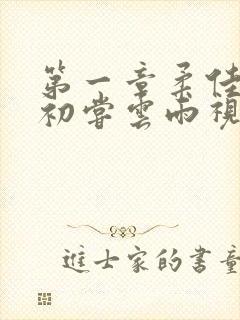 第一章柔佳
初嘗雲雨視
進士家的書童